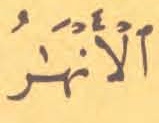 ٱلۡأَنۡهَٰرُ